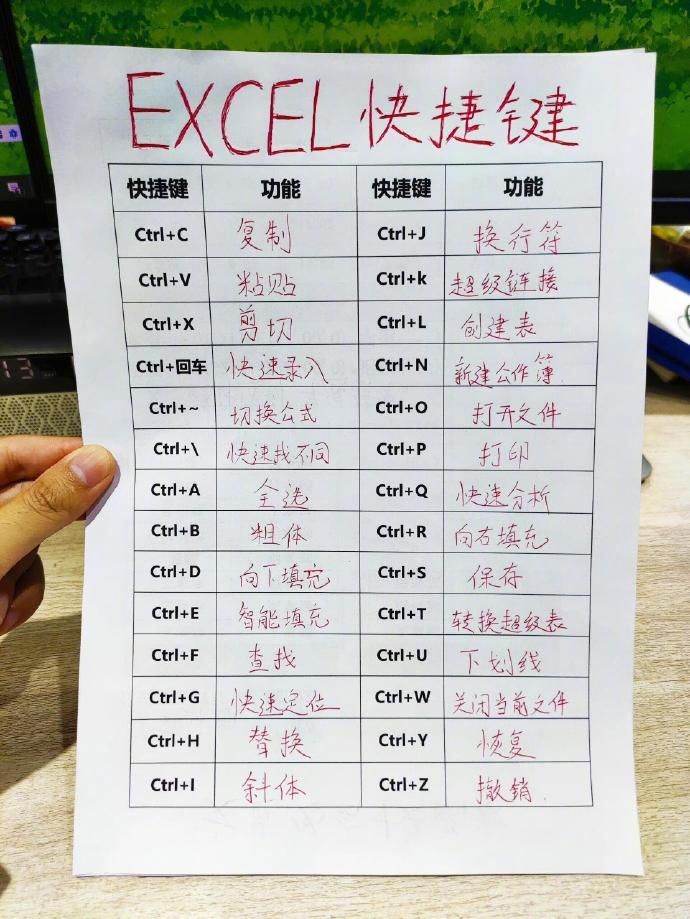 EXCEL快捷键
快捷键 功能 快捷键 功能
Ctrl+C 复制 Ctrl+J 换行符
Ctrl+V 粘贴 Ctrl+k 超级链接
Ctrl+X 剪切 Ctrl+L 创建表
Ctrl+回车 快速录入 Ctrl+N 新建工作簿.
Ctrl+~ 切换公式 Ctrl+O 打开文件
Ctrl+\ 快速找不同 Ctrl+P 打印
Ctrl+A 全选 Ctrl+Q 快速分析
Ctrl+B 粗体 Ctrl+R 向右填充
Ctrl+D 向下填充 Ctrl+S 保存
Ctrl+E 智能填充 Ctrl+T 转换超级表
Ctrl+F 查找 Ctrl+U 下划线
Ctrl+G 快速定位 Ctrl+W 关闭当前文件
Ctrl+H 替换 Ctrl+Y 恢复
Ctrl+I 斜体 Ctrl+Z 撤销.
13